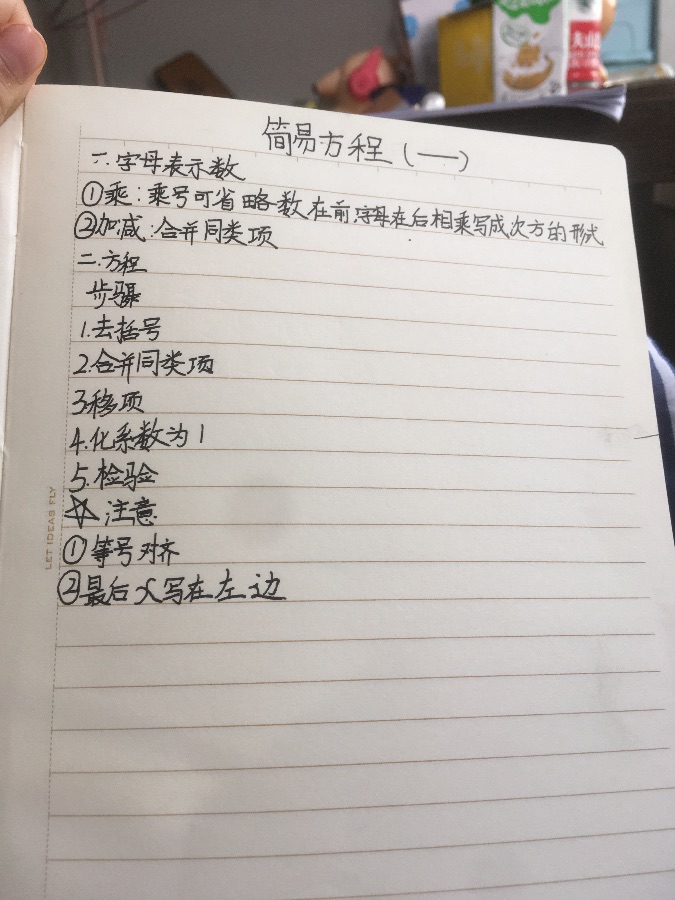 简易方程(一)
一.字母表示数
①乘:乘号可省略数在前字母在后相乘写成次方的形式
②加减:合并同类项
二.方程
步骤
1.去括号
2.合并同类项
3.移项
4.化系数为1
5.检验
☆注意
①等号对齐
②最后x写在左边
LET IDEAS FLY